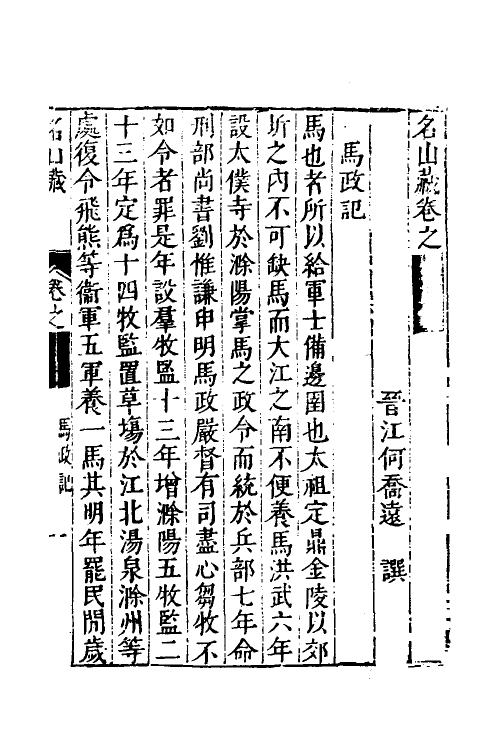 名山藏卷之
晉江何喬遠 譔
馬政記
馬也者所以給軍士備邊圉也太祖定鼎金陵以郊
圻之內不可缺馬而大江之南不便養馬洪武六年
設太僕寺於滁陽掌馬之政令而統於兵部七年命
刑部尚書劉惟謙申明馬政嚴督有司盡心芻牧不
如令者罪是年設羣牧監十三年增滁陽五牧監二
十三年定爲十四牧監置草塲於江北湯泉滁州等
處復令飛熊等衞軍五軍養一馬其明年罷民閒歲
名山藏 卷之 馬政記 一